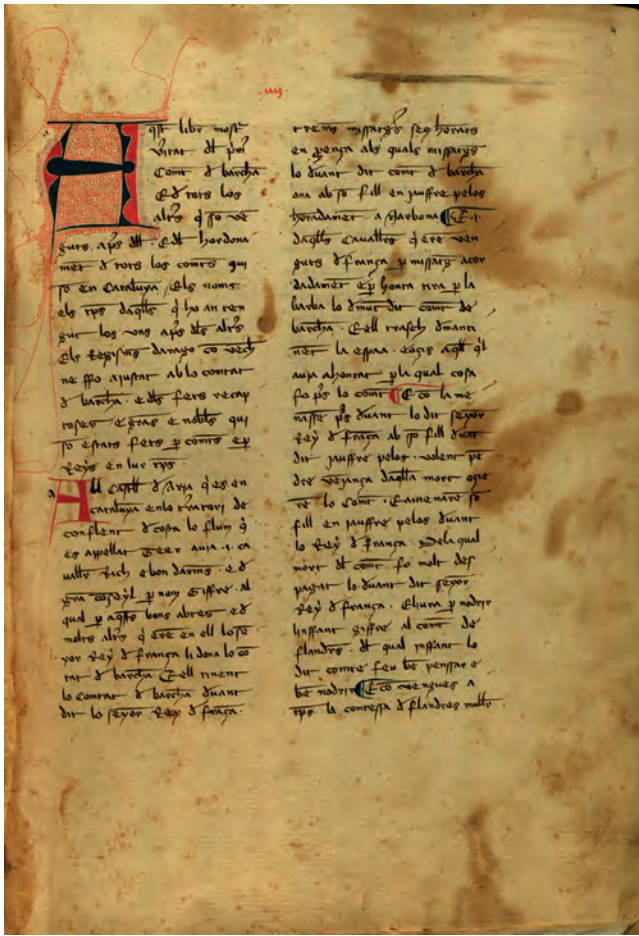 .iiij.
Aq̄st libr̄ mostr̄
v̄itat dl̄ pm̄
Comt d̄ barch̄a
E d̄ tots los
altr̄s q̄ so vē
guts . ap̄s dll̄ . E dl̄ hordona
mēt d̄ tots los comt̄s qui
so en Cataluya / Els noms
els tp̄s daq̄lls q̄ ho an ten
gut los vns ap̄s dls̄ altr̄s
Els Regism̄s darago co vech̄
ne ffo aiustat ab lo comtat
d̄ barch̄a . e dls̄ fets recap
toses e gras e nobl̄s qui
so estats fets p̄ comt̄s e p̄
Reys en lur tp̄s .
All Castll̄ d̄ Aria q̄ es en
cataluya en lo t̄rratori de
conflent d̄ costa lo flum q̄
es appellat Teer auia .i. ca
vallr̄ Rich e bon darm̄s . e d̄
gra coseyl p̄ nom Giffre . al
qual p̄ aq̄sts bons abtes e d̄
molts altr̄s q̄ ere en ell lo se
yor Rey d̄ frança li dona lo cō
tat d̄ barch̄a E ell tinent
lo Comtat d̄ barch̄a duant
dit lo seȳor Rey d̄ fraça .
trem̄s missatgr̄s sey horats
en p̄ença als quals missatgr̄s
lo duant dit comt d̄ barch̄a
ana ab so fill en jauffre pelos
horadamet . a Narbona E .i.
daq̄lls Cauallr̄s q̄ ere ven
guts d̄ frança p̄ missatg acor
dadamēt e p̄ honta tira p̄ la
barba lo duāt dit comt de
barch̄a . E ell trasch d̄manti
nēt la espaa . e ocis aq̄ll q̄l
auia ahontat . p̄ la qual cosa
fo p̄s lo comt E co la me
nasse p̄s duant lo dit seyor
Rey d̄ fraça ab so fill duāt
dit jauffre pelos . volent pē
dre vējança daq̄lla mort ocie
rē lo Comt . E amenare so
fill en jauffre pelos duant
lo Rey d̄ frança . Dela qual
mort dl̄ comt fo molt des
pagat lo duant dit seyor
Rey d̄ frança . E liura p̄ nodrir
linffant giffre al comt de
flandr̄s . dl̄ qual inffant lo
dit comte feu be penssar e
be nodrir E co vengues a
tp̄s la contessa d̄ flandres mullr̄